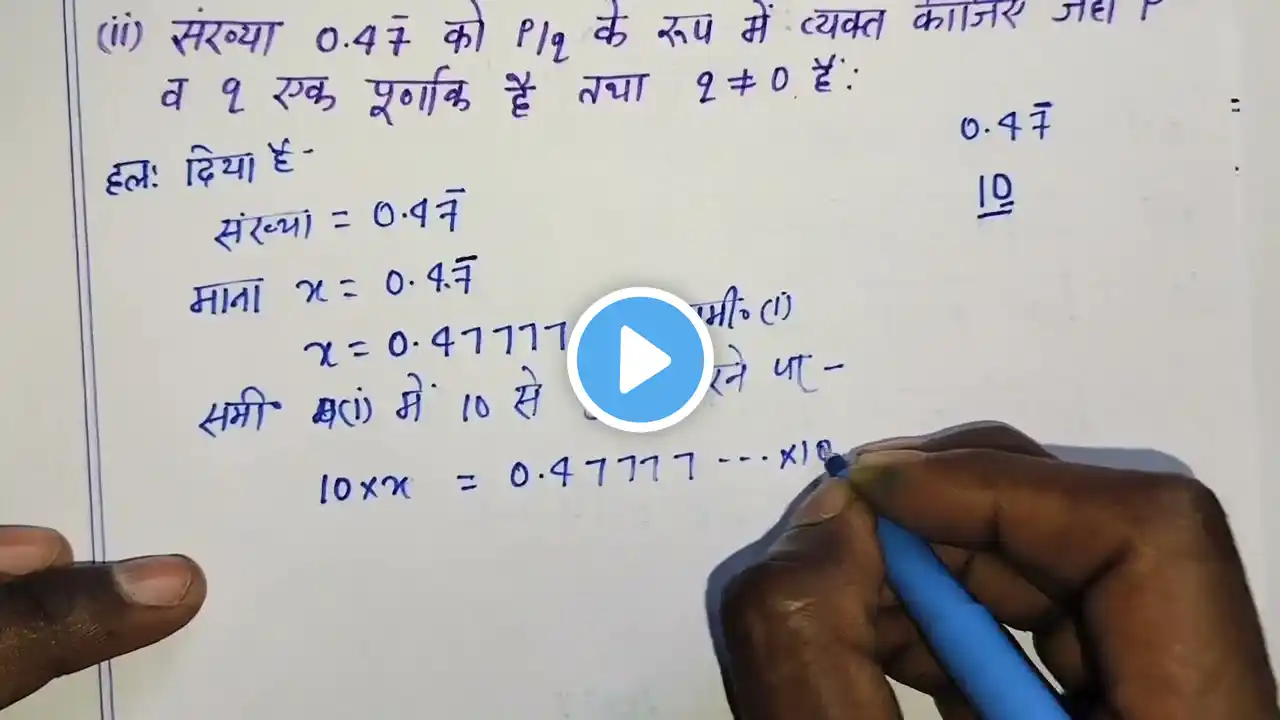 (ii) संख्या 0.47̅ को P/q के रूप में व्यक्त कीजिए जहाँ P
व q एक पूर्णांक है तथा q ≠ 0 है:
0.47̅
10
हल: दिया है -
संख्या = 0.47̅
माना x = 0.47̅
x = 0.47777 समी० (i)
समी० (i) में 10 से रने पर -
10 × x = 0.47777 --- × 10